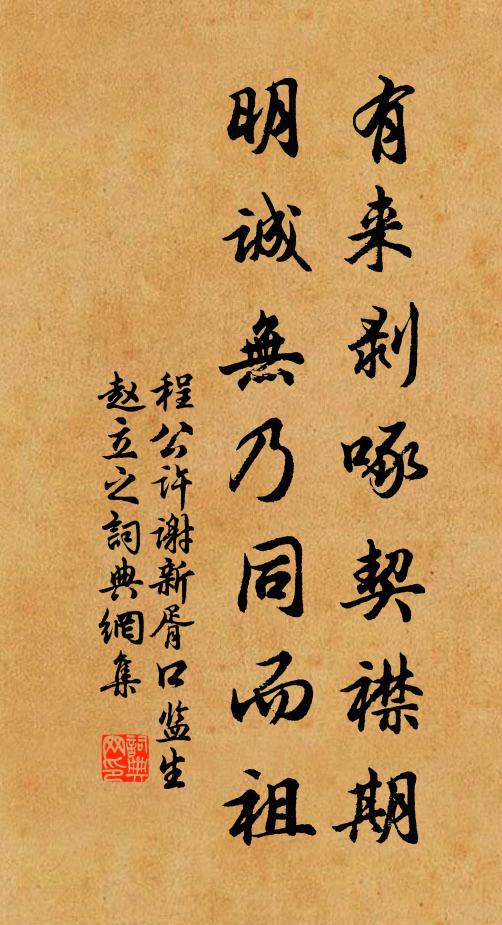 有来剥啄契襟期
明诚無乃同而祖
程公许谢新胥口监生
赵立之詞典網集
詞典网印